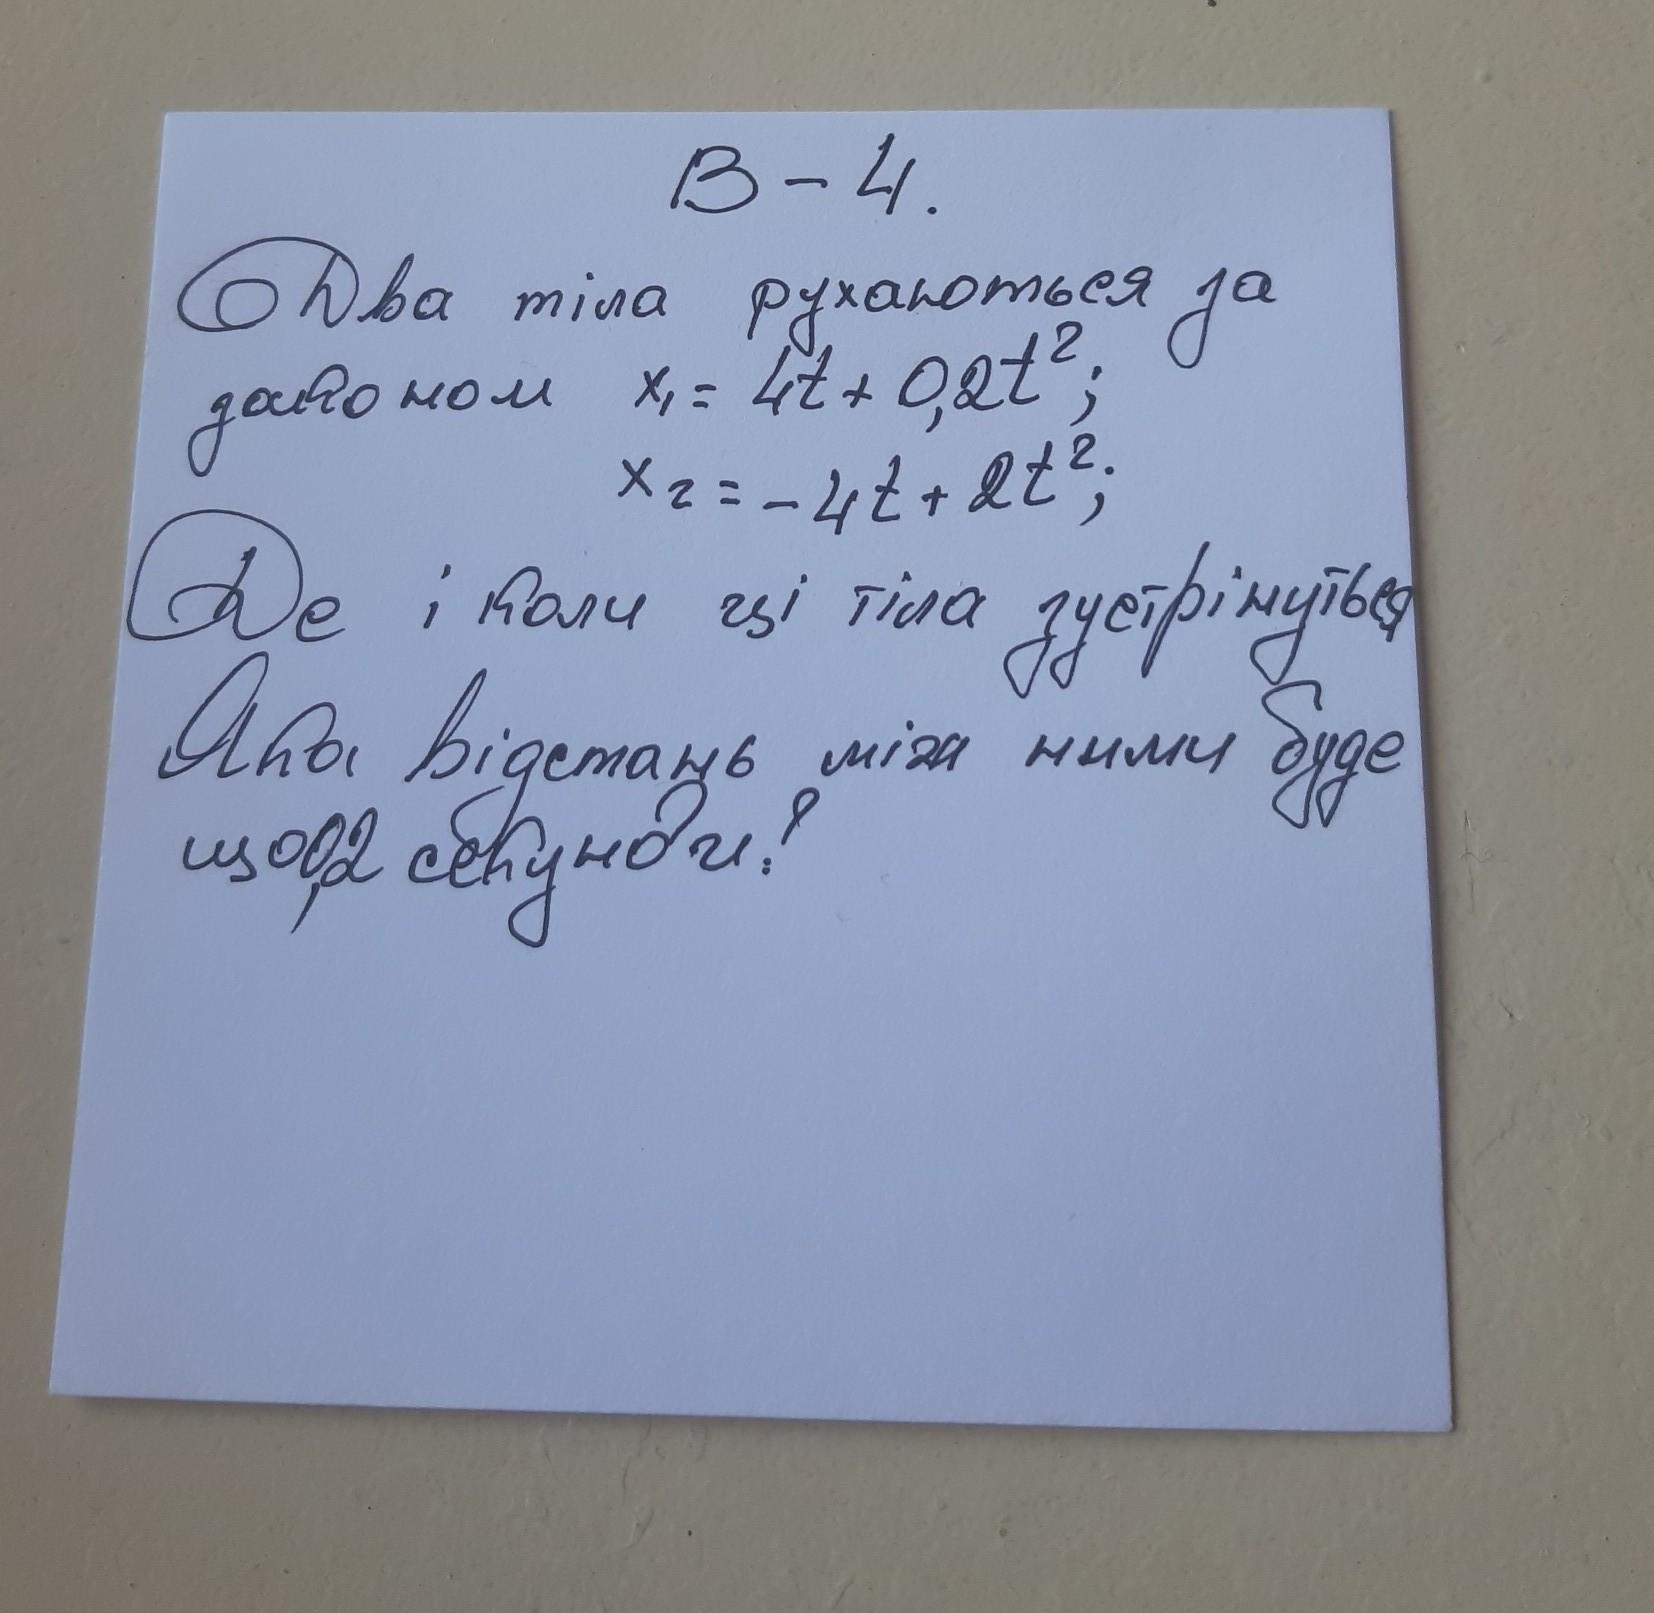 В – 4.
Два тіла рухаються за
законом x₁ = 4t + 0,2t²;
x₂ = – 4t + 2t²;
Де і коли ці тіла зустрінуться
Яка відстань між ними буде
що0,2 секунди?